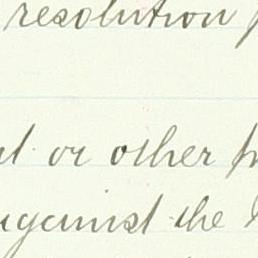 resolution
or other
against the